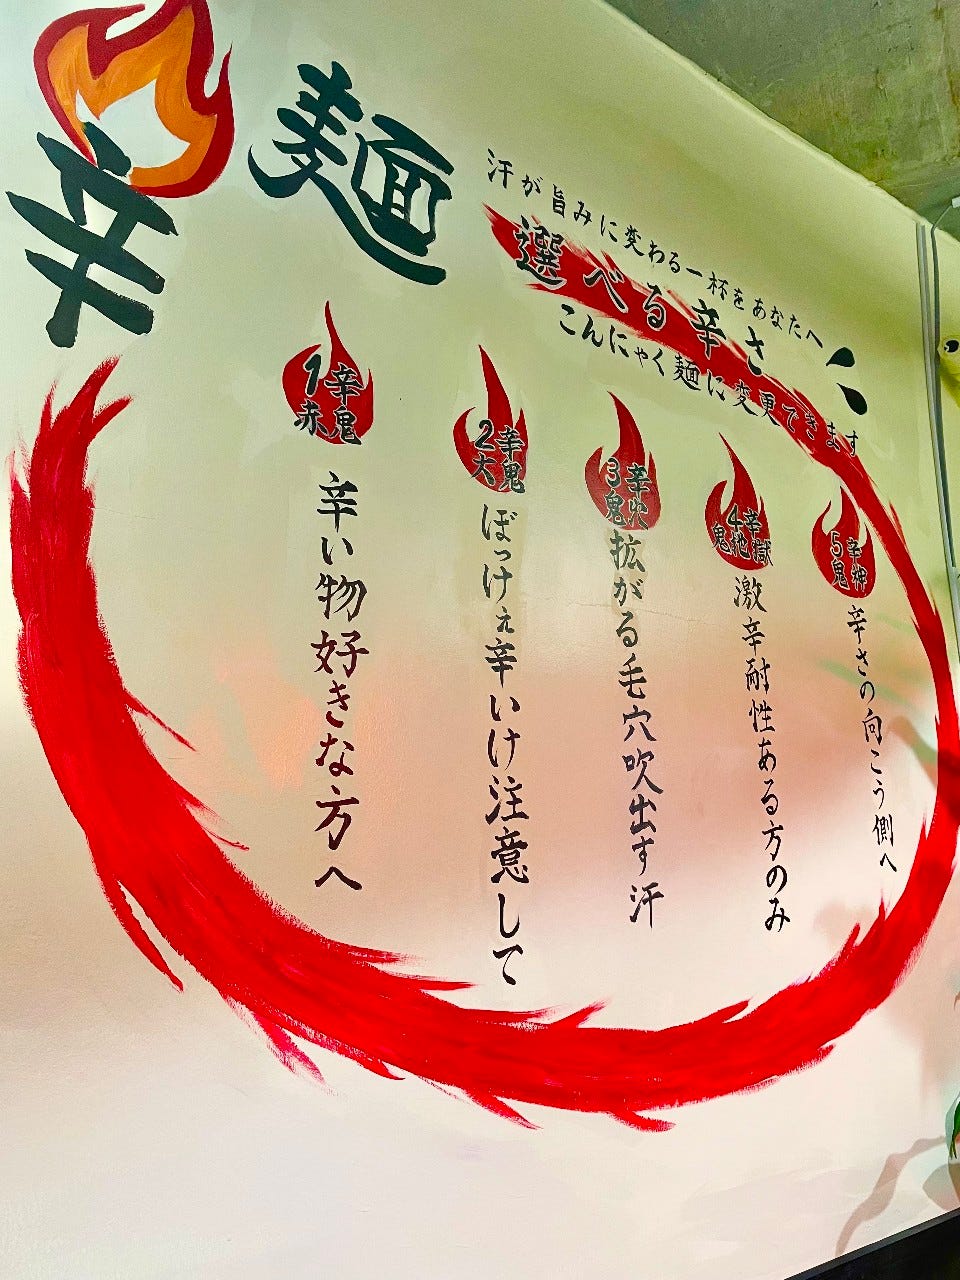 辛麺
汗が旨みに変わる一杯をあなたへ
選べる辛さ
こんにゃく麺に変更できます
1辛
赤鬼
辛い物好きな方へ
2辛
大鬼
ぼっけぇ辛いけ注意して
3辛
鬼火
拡がる毛穴吹出す汗
4辛
鬼地獄
激辛耐性ある方のみ
5辛
鬼神
辛さの向こう側へ